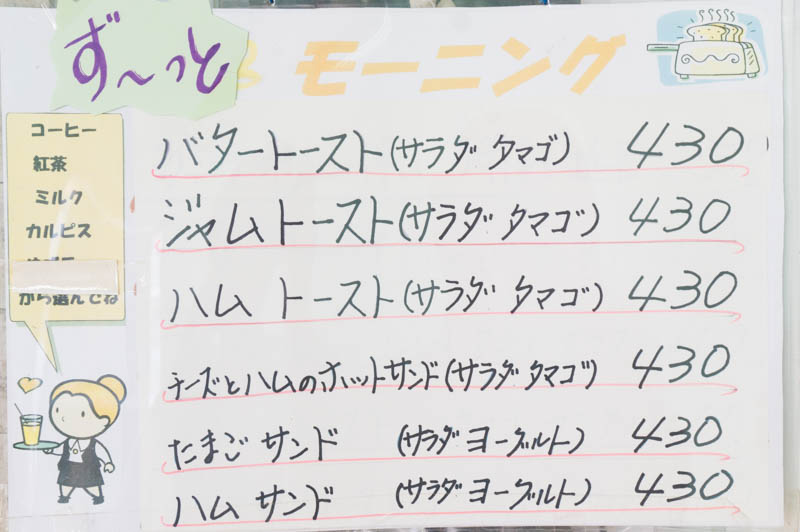 ず〜っと モーニング
コーヒー
紅茶
ミルク
カルピス
から選んでね
バタートースト(サラダ タマゴ) 430
ジャムトースト(サラダ タマゴ) 430
ハム トースト(サラダ タマゴ) 430
チーズとハムのホットサンド(サラダ タマゴ) 430
たまご サンド (サラダ ヨーグルト) 430
ハム サンド (サラダ ヨーグルト) 430